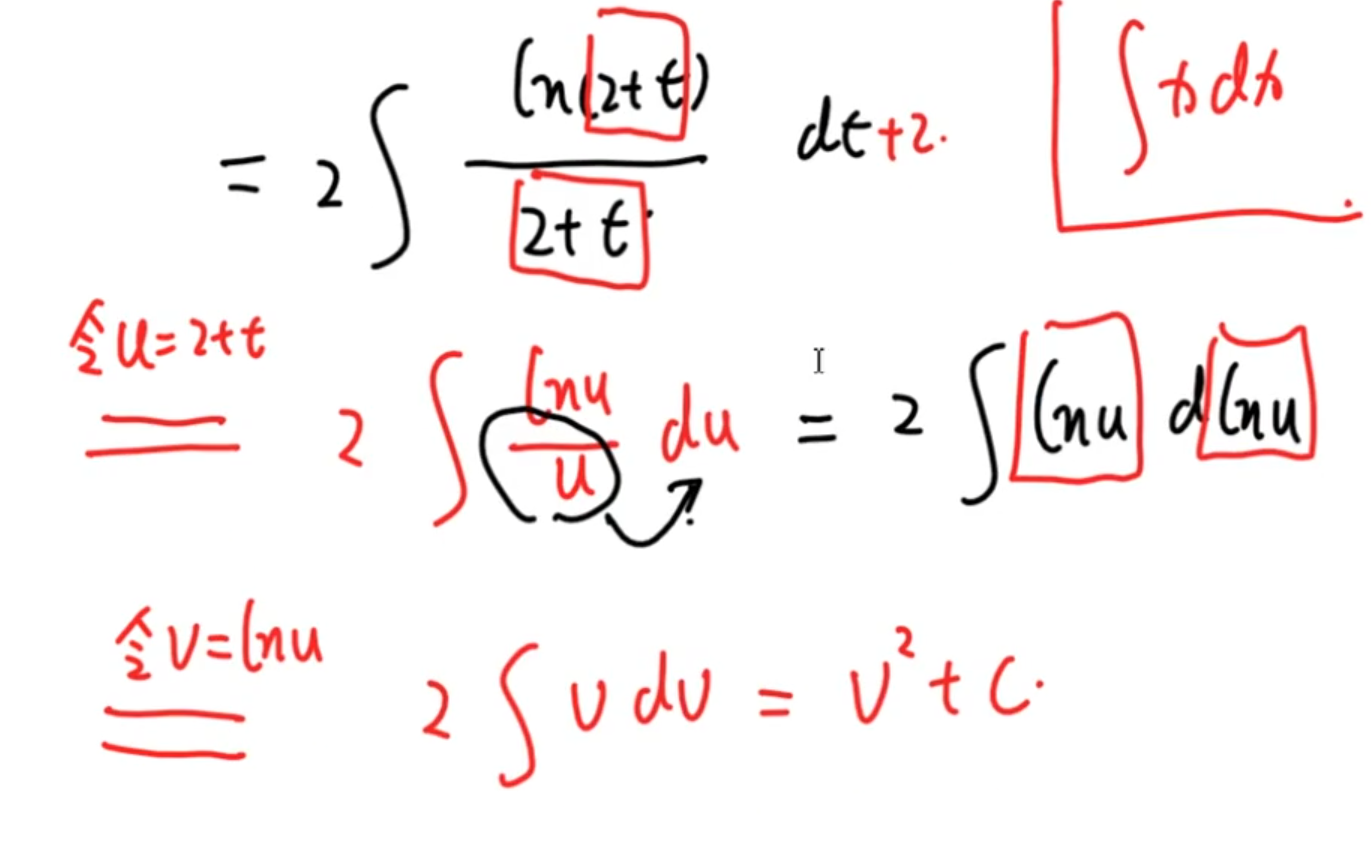 = 2∫ ln(2+t)/(2+t) dt+2. ∫xdx
令u=2+t 2∫ lnu/u du = 2∫ lnu dlnu
令v=lnu 2∫vdv = v²+C.